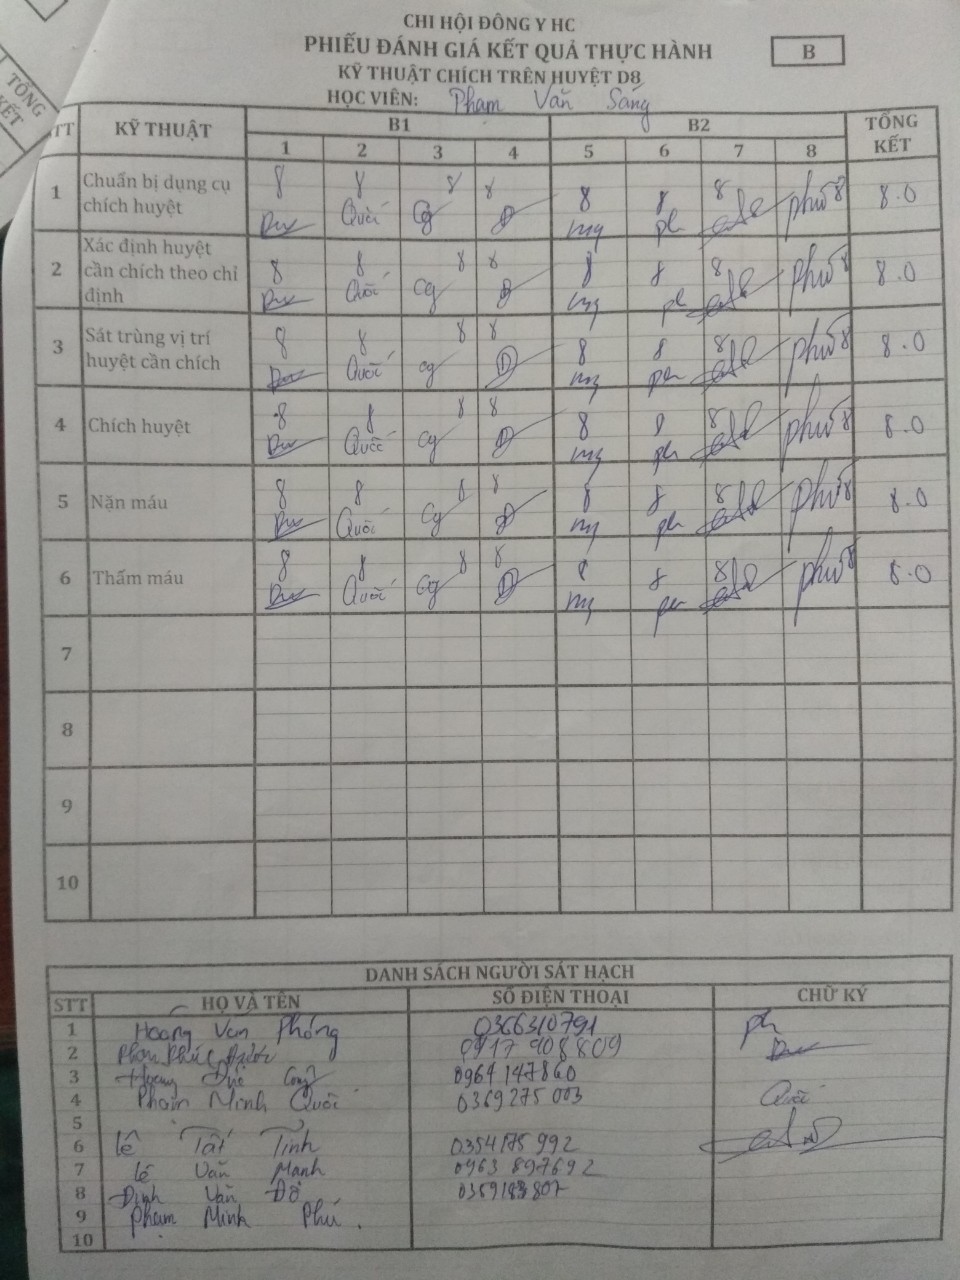 TỔNG
KẾT
CHI HỘI ĐÔNG Y HC
PHIẾU ĐÁNH GIÁ KẾT QUẢ THỰC HÀNH
B
KỸ THUẬT CHÍCH TRÊN HUYỆT D8
HỌC VIÊN: Phạm Văn Sáng
TT KỸ THUẬT B1 B2 TỔNG KẾT
1 2 3 4 5 6 7 8
1 Chuẩn bị dụng cụ chích huyệt 8 8 8 8 8 8 8 8 8.0
Quốc Cg Đ mg ph phú
2 Xác định huyệt cần chích theo chỉ định 8 8 8 8 8 8 8 8 8.0
Quốc Cg Đ mg ph phú
3 Sát trùng vị trí huyệt cần chích 8 8 8 8 8 8 8 8 8.0
Quốc cg Đ mg ph phú
4 Chích huyệt 8 8 8 8 8 8 8 8 8.0
Quốc Cg Đ mg ph phú
5 Nặn máu 8 8 8 8 8 8 8 8 8.0
Quốc Cg Đ mg ph phú
6 Thấm máu 8 8 8 8 8 8 8 8 8.0
Quốc Cg Đ mg ph phú
7
8
9
10
DANH SÁCH NGƯỜI SÁT HẠCH
STT HỌ VÀ TÊN SỐ ĐIỆN THOẠI CHỮ KÝ
1 Hoàng Văn Phóng 0366310791 ph
2 Phan Phúc 0917 908809
3 Hoàng Đức Công 0964 147860
4 Phạm Minh Quốc 0369275003 Quốc
5
6 Lê Tất Tỉnh 0354175 992
7 Lê Văn Mạnh 0963 897692
8 Đinh Văn Độ
9 Phạm Minh Phú
10